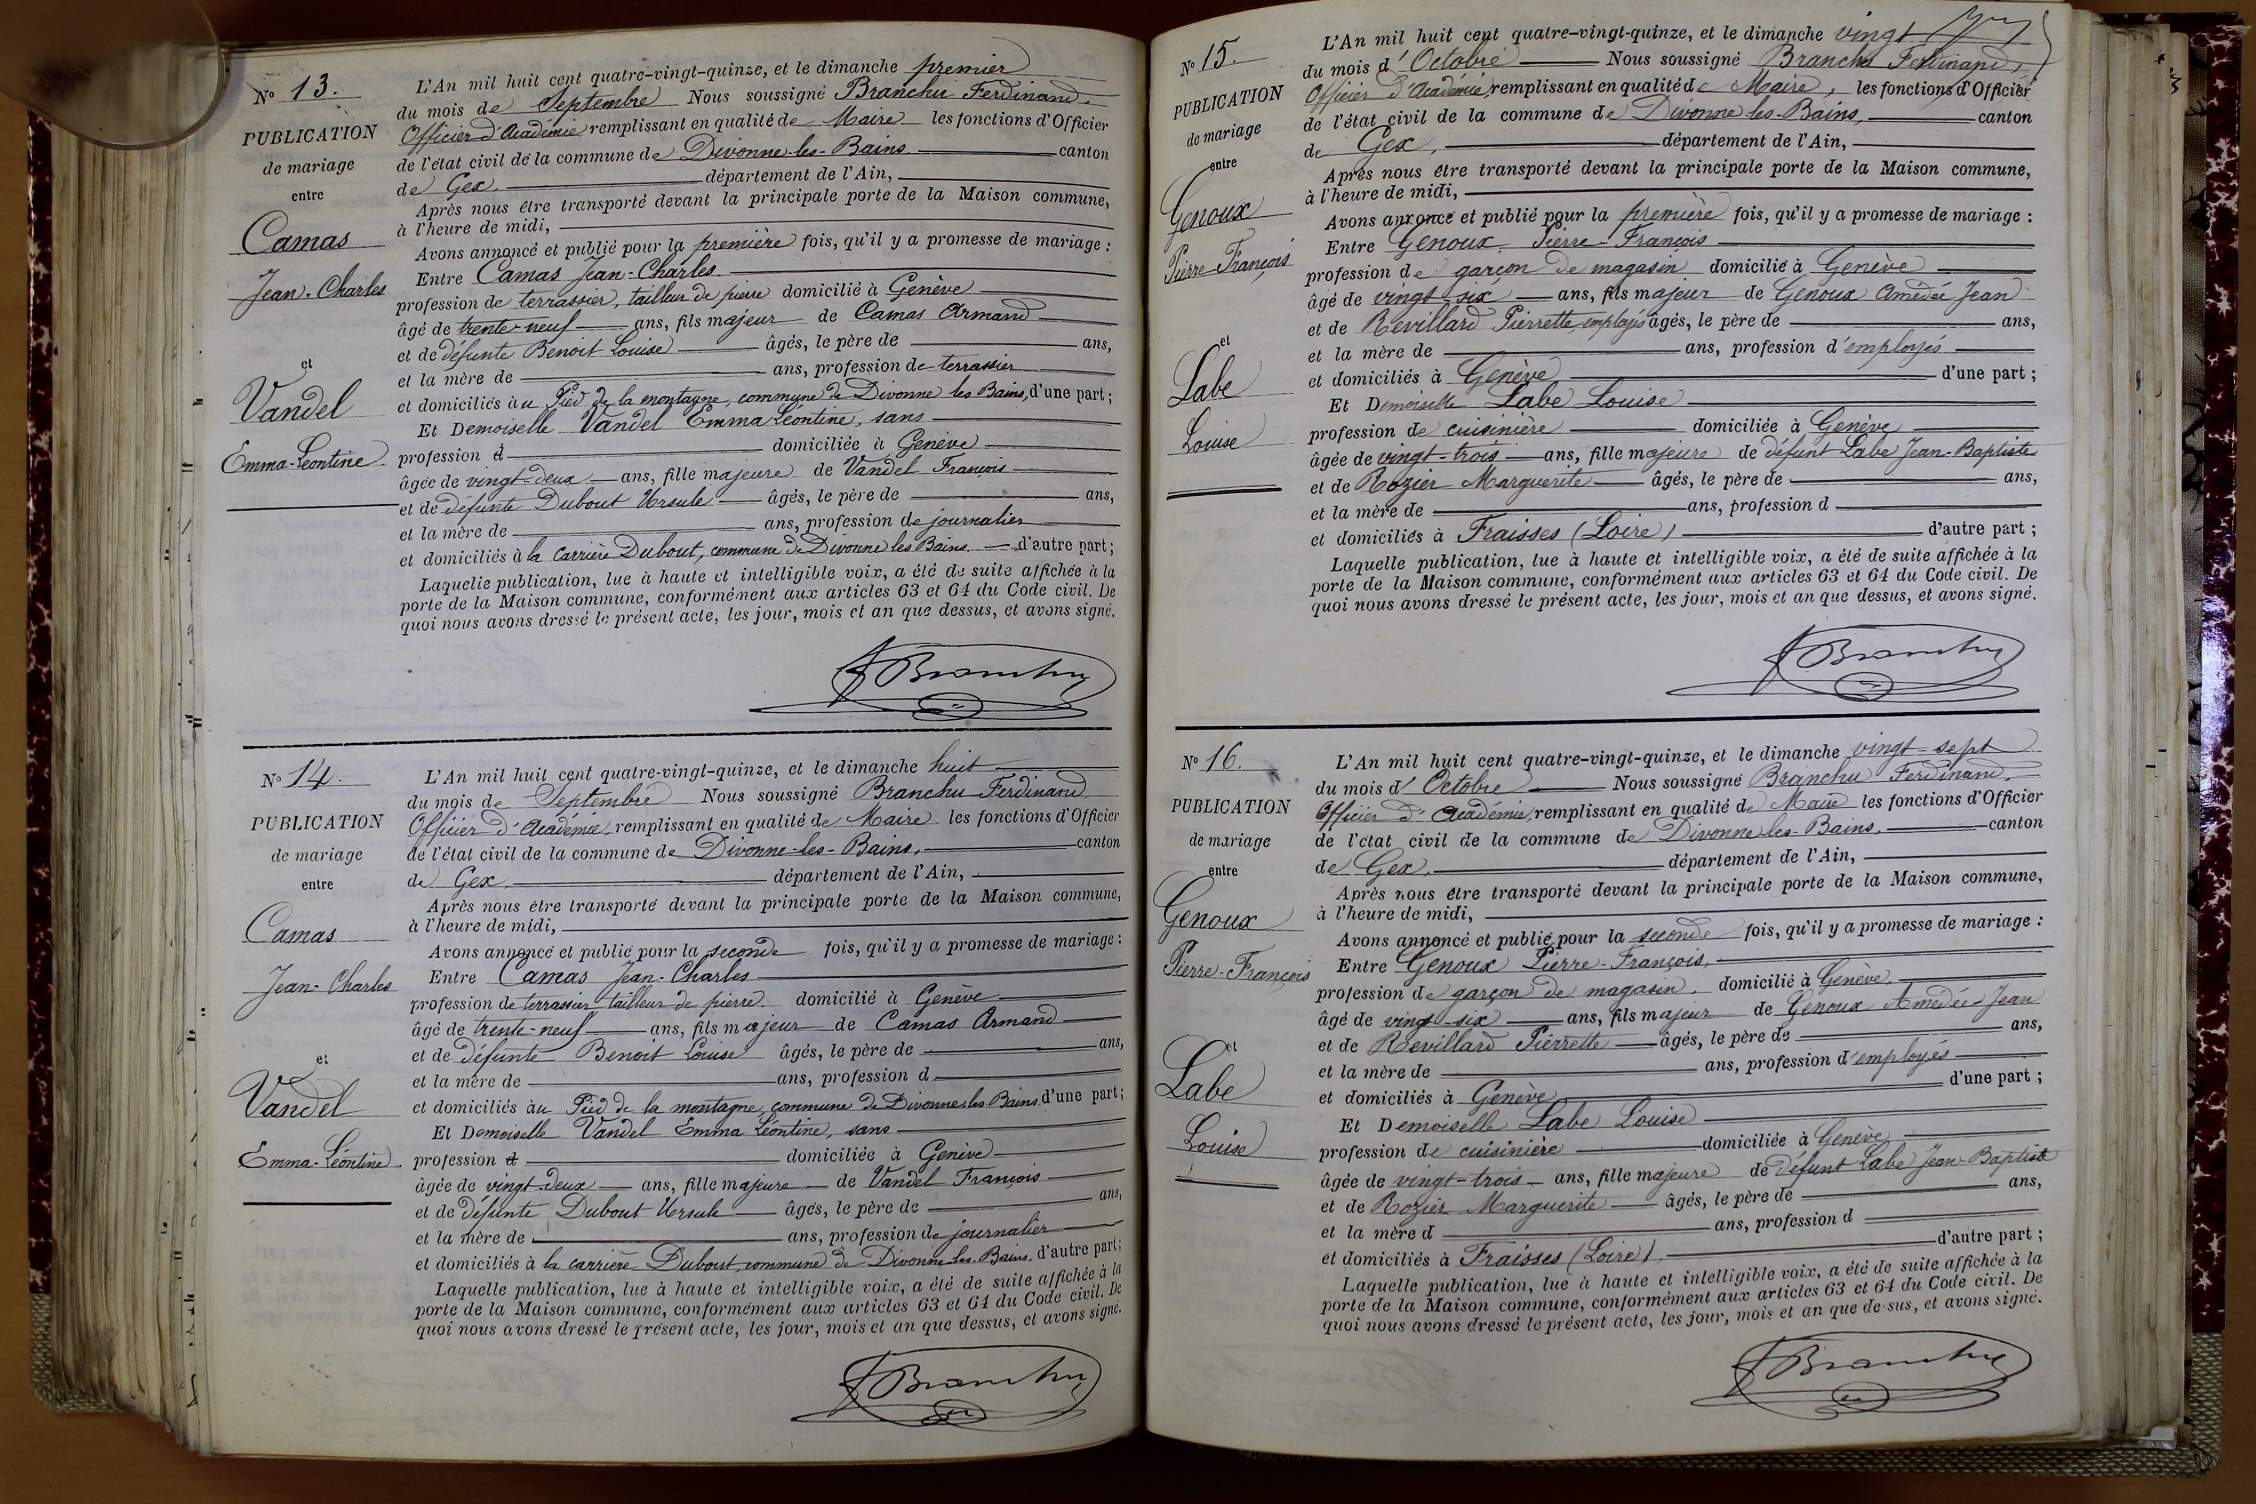 N° 13.
PUBLICATION
de mariage
entre
Camas
Jean-Charles
et
Vandel
Emma-Léontine
L'An mil huit cent quatre-vingt-quinze, et le dimanche premier
du mois de Septembre Nous soussigné Branchu Ferdinand,
Officier d'Académie remplissant en qualité de Maire les fonctions d'Officier
de l'état civil de la commune de Divonne-les-Bains canton
de Gex, département de l'Ain,
Après nous être transporté devant la principale porte de la Maison commune,
à l'heure de midi,
Avons annoncé et publié pour la première fois, qu'il y a promesse de mariage :
Entre Camas Jean-Charles
profession de terrassier, tailleur de pierre domicilié à Genève
âgé de trente-neuf ans, fils majeur de Camas Armand
et de défunte Benoit Louise âgés, le père de ans,
et la mère de ans, profession de terrassier
et domiciliés au Pied de la montagne, commune de Divonne les Bains, d'une part ;
Et Demoiselle Vandel Emma Léontine, sans
profession d domiciliée à Genève
âgée de vingt-deux ans, fille majeure de Vandel François
et de défunte Dubout Ursule âgés, le père de ans,
et la mère de ans, profession de journalier
et domiciliés à la carrière Dubout, commune de Divonne les Bains d'autre part ;
Laquelle publication, lue à haute et intelligible voix, a été de suite affichée à la
porte de la Maison commune, conformément aux articles 63 et 64 du Code civil. De
quoi nous avons dressé le présent acte, les jour, mois et an que dessus, et avons signé.
F Branchu
N° 14.
PUBLICATION
de mariage
entre
Camas
Jean-Charles
et
Vandel
Emma-Léontine.
L'An mil huit cent quatre-vingt-quinze, et le dimanche huit
du mois de Septembre Nous soussigné Branchu Ferdinand
Officier d'Académie, remplissant en qualité de Maire les fonctions d'Officier
de l'état civil de la commune de Divonne-les-Bains, canton
de Gex, département de l'Ain,
Après nous être transporté devant la principale porte de la Maison commune,
à l'heure de midi,
Avons annoncé et publié pour la seconde fois, qu'il y a promesse de mariage :
Entre Camas Jean-Charles
profession de terrassier tailleur de pierre domicilié à Genève
âgé de trente-neuf ans, fils majeur de Camas Armand
et de défunte Benoit Louise âgés, le père de ans,
et la mère de ans, profession d
et domiciliés au Pied de la montagne, commune de Divonne les Bains d'une part ;
Et Demoiselle Vandel Emma Léontine, sans
profession d domiciliée à Genève
âgée de vingt-deux ans, fille majeure de Vandel François
et de défunte Dubout Ursule âgés, le père de ans,
et la mère de ans, profession de journalier
et domiciliés à la carrière Dubout, commune de Divonne-les-Bains, d'autre part ;
Laquelle publication, lue à haute et intelligible voix, a été de suite affichée à la
porte de la Maison commune, conformément aux articles 63 et 64 du Code civil. De
quoi nous avons dressé le présent acte, les jour, mois et an que dessus, et avons signé.
F Branchu
N° 15.
PUBLICATION
de mariage
entre
Genoux
Pierre-François
et
Labe
Louise
L'An mil huit cent quatre-vingt-quinze, et le dimanche vingt
du mois d'Octobre Nous soussigné Branchu Ferdinand,
Officier d'Académie, remplissant en qualité de Maire, les fonctions d'Officier
de l'état civil de la commune de Divonne-les-Bains, canton
de Gex, département de l'Ain,
Après nous être transporté devant la principale porte de la Maison commune,
à l'heure de midi,
Avons annoncé et publié pour la première fois, qu'il y a promesse de mariage :
Entre Genoux Pierre-François
profession de garçon de magasin domicilié à Genève
âgé de vingt-six ans, fils majeur de Genoux Amédée Jean
et de Revillard Pierrette employés âgés, le père de ans,
et la mère de ans, profession d'employés
et domiciliés à Genève d'une part ;
Et Demoiselle Labe Louise
profession de cuisinière domiciliée à Genève
âgée de vingt-trois ans, fille majeure de défunt Labe Jean-Baptiste
et de Rozier Marguerite âgés, le père de ans,
et la mère de ans, profession d
et domiciliés à Fraisses (Loire) d'autre part ;
Laquelle publication, lue à haute et intelligible voix, a été de suite affichée à la
porte de la Maison commune, conformément aux articles 63 et 64 du Code civil. De
quoi nous avons dressé le présent acte, les jour, mois et an que dessus, et avons signé.
F Branchu
N° 16.
PUBLICATION
de mariage
entre
Genoux
Pierre-François
et
Labe
Louise
L'An mil huit cent quatre-vingt-quinze, et le dimanche vingt-sept
du mois d'Octobre Nous soussigné Branchu Ferdinand,
Officier d'Académie, remplissant en qualité de Maire les fonctions d'Officier
de l'état civil de la commune de Divonne-les-Bains, canton
de Gex, département de l'Ain,
Après nous être transporté devant la principale porte de la Maison commune,
à l'heure de midi,
Avons annoncé et publié pour la seconde fois, qu'il y a promesse de mariage :
Entre Genoux Pierre-François,
profession de garçon de magasin, domicilié à Genève,
âgé de vingt-six ans, fils majeur de Genoux Amédée Jean
et de Revillard Pierrette âgés, le père de ans,
et la mère de ans, profession d'employés
et domiciliés à Genève d'une part ;
Et Demoiselle Labe Louise
profession de cuisinière domiciliée à Genève
âgée de vingt-trois ans, fille majeure de défunt Labe Jean-Baptiste
et de Rozier Marguerite âgés, le père de ans,
et la mère d ans, profession d
et domiciliés à Fraisses (Loire), d'autre part ;
Laquelle publication, lue à haute et intelligible voix, a été de suite affichée à la
porte de la Maison commune, conformément aux articles 63 et 64 du Code civil. De
quoi nous avons dressé le présent acte, les jour, mois et an que dessus, et avons signé.
F Branchu